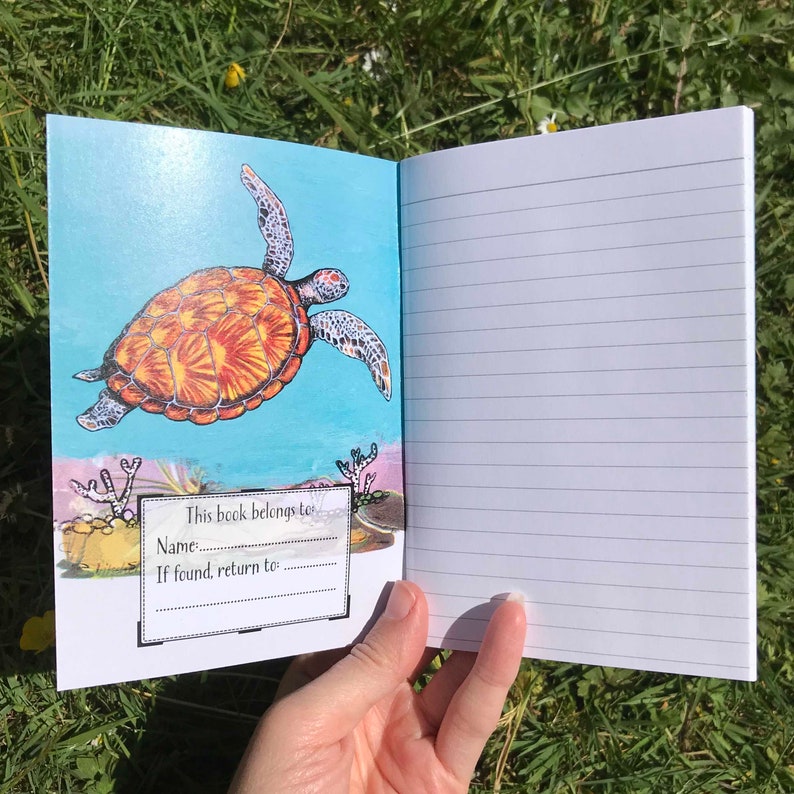 This book belongs to:
Name:....................................
If found, return to: ..............
..............................................